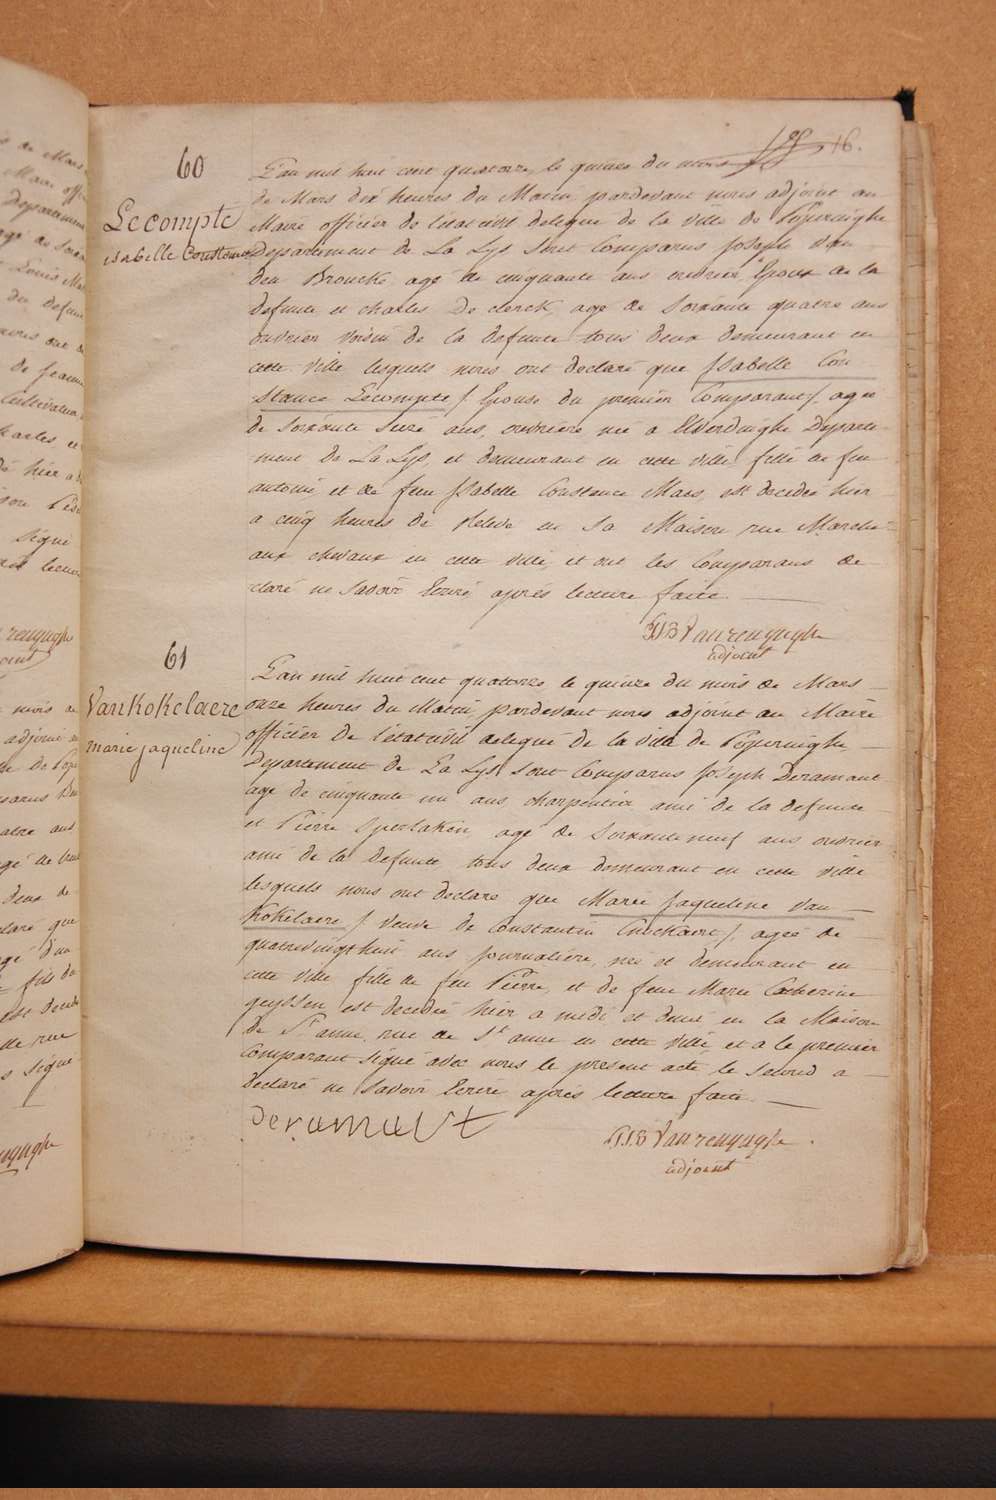 16.
60
Lecompte
isabelle Constance
L'an mil huit cent quatorze le quinze du mois
de Mars dix heures du Matin pardevant nous adjoint au
Maire officier de l'état civil delegué de la ville de Poperinghe
Departement de La Lys sont Comparus Joseph Van
den Broucke agé de cinquante ans ouvrier Epoux de la
defunte et charles De clerck, agé de soixante quatre ans
ouvrier voisin de la defunte tous deux demeurant en
cette Ville lesquels nous ont declaré que Isabelle Con
stance Lecompte / Epouse du premier Comparant / agée
de soixante seize ans, ouvrière née a Elverdinghe Departe-
ment de La Lys, et demeurant en cette ville fille de feu
antoine et de feue Isabelle Constance Maes, est decedée hier
a cinq heures de relevé en sa Maison rue Marché
aux chevaux en cette ville, et ont les Comparans de
claré ne savoir Ecrire après lecture faite
PJB Vanrenynghe
adjoint
61
VanKoKelaere
marie jaqueline
L'an mil huit cent quatorze le quinze du mois de Mars
onze heures du Matin, pardevant nous adjoint au Maire
officier de l'état civil delegué de la ville de Poperinghe
Departement de La Lys sont Comparus Joseph Deramaut
agé de cinquante un ans charpentier ami de la defunte
et Pierre Sperlaken, agé de soixante neuf ans ouvrier
ami de la defunte tous deux demeurant en cette ville
lesquels nous ont declaré que Marie Jaqueline Van
Kokelaere / veuve de Constantin / agée de
quatrevingthuit ans journalière, née et demeurant en
cette ville fille de feu Pierre, et de feue Marie Catherine
geyssen, est decedée hier a midi et demi en la Maison
de St anne rue de St anne en cette ville et a le premier
Comparant signé avec nous le present acte le second a
declaré ne savoir Ecrire après lecture faite.
deramaut
PJB Vanrenynghe
adjoint